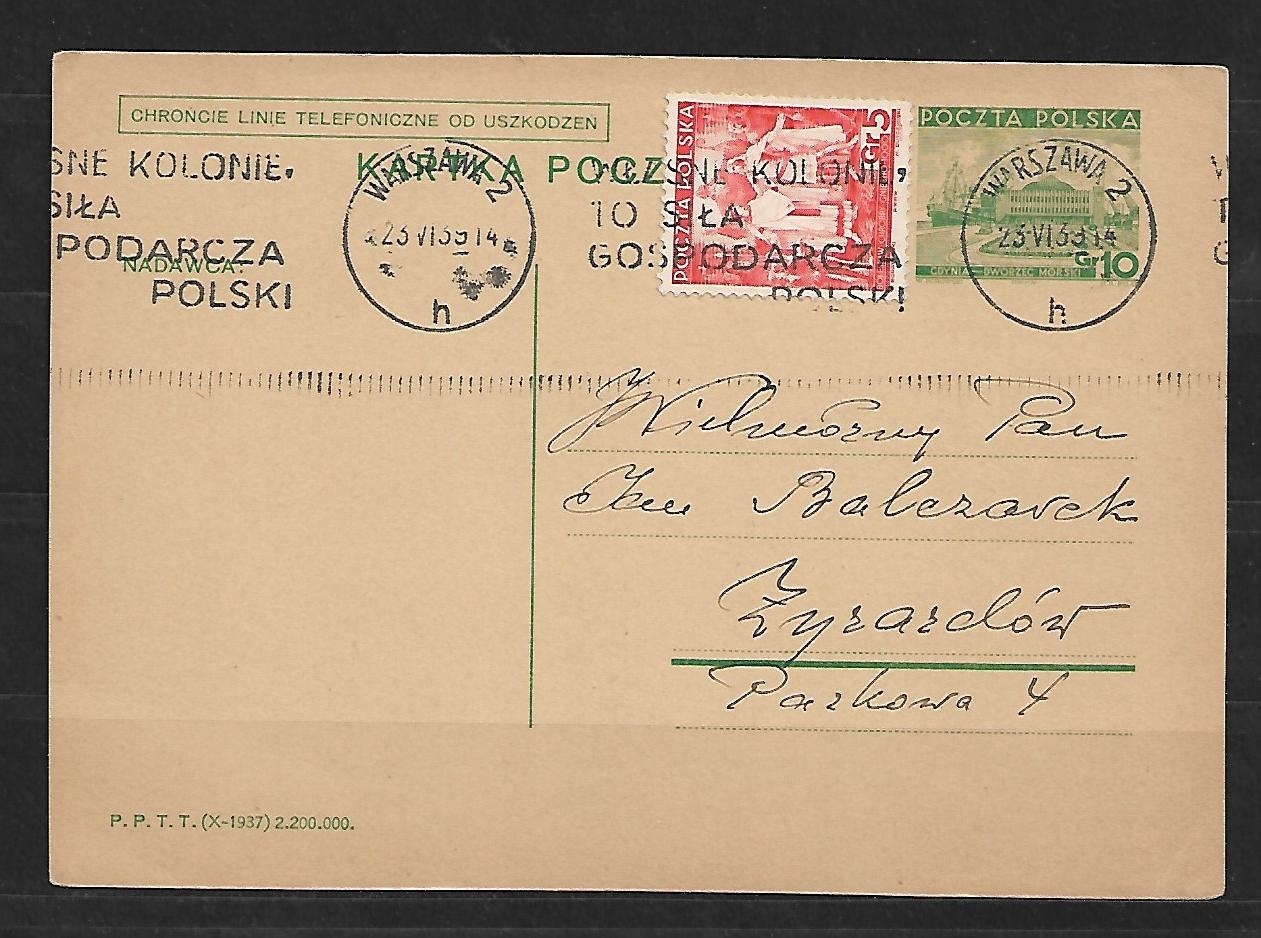 CHROŃCIE LINIE TELEFONICZNE OD USZKODZEŃ
KARTKA POCZ
SNE KOLONIE,
SIŁA
PODARCZA
POLSKI
WARSZAWA 2
23 VI 39 14
h
WŁASNE KOLONIE,
TO SIŁA
GOSPODARCZA
POLSKI!
POCZTA POLSKA
Gr 5
POCZTA POLSKA
POCZTA POLSKA
GDYNIA DWORZEC MORSKI
Gr 10
WARSZAWA 2
23 VI 39 14
h
NADAWCA:
Wielmożny Pan
Jan Balczarek
Żyrardów
Parkowa 4
P. P. T. T. (X-1937) 2.200.000.